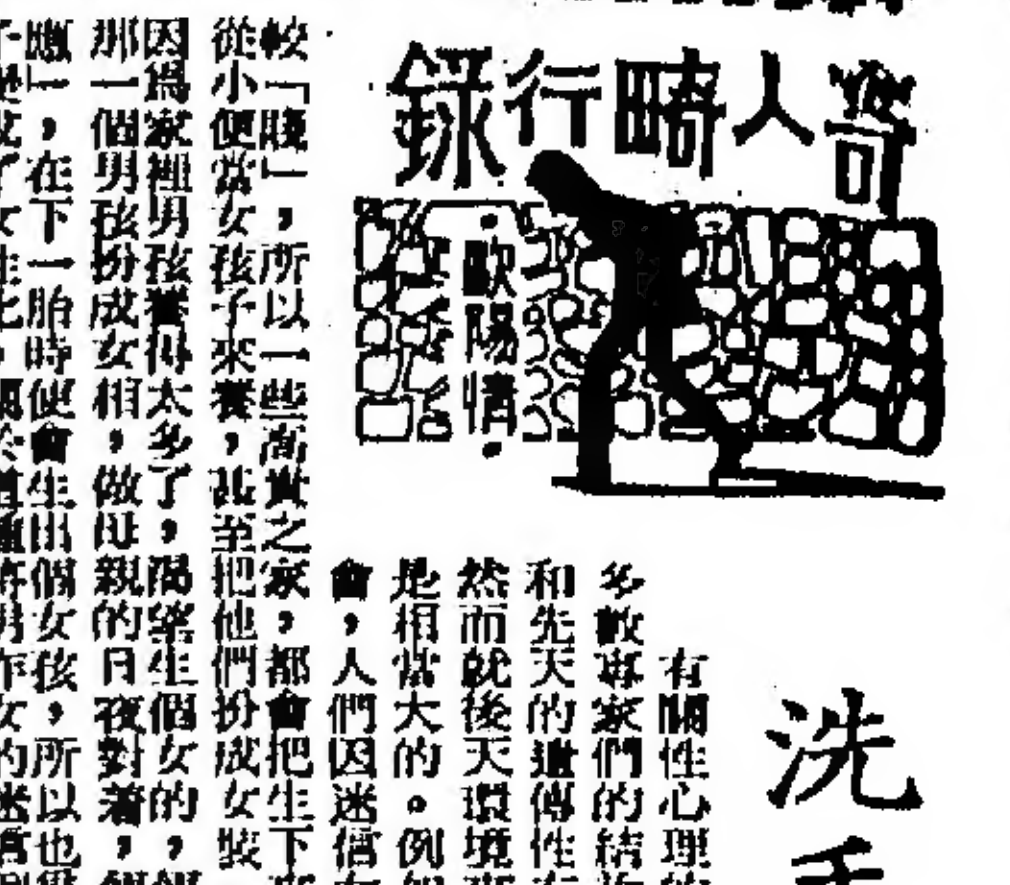 奇人畸行錄
·歐陽情·
洗手
有關性心理
多數專家們的結
和先天的遺傳性
然而就後天環境
是相當大的。例
會，人們因迷信
較「賤」，所以一些高貴之家，都會把生下
從小便當女孩子來養，甚至把他們扮成女裝
因為家裡男孩養得太多了，渴望生個女的，
那一個男孩扮成女相，做母親的日夜對着，
應」，在下一胎時便會生出個女孩，所以也